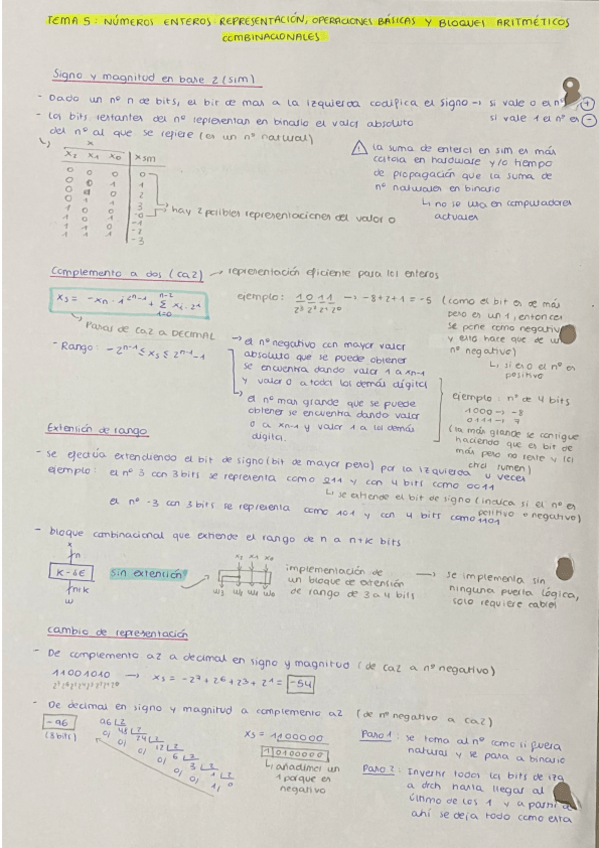 TEMA 5: NÚMEROS ENTEROS: REPRESENTACIÓN, OPERACIONES BÁSICAS Y BLOQUES ARITMÉTICOS
COMBINACIONALES
Signo y magnitud en base 2 (SIM)
- Dado un nº n de bits, el bit de mas a la izquierda codifica el signo → si vale 0 el nº +
si vale 1 el nº es -
- Los bits restantes del nº representan en binario el valor absoluto
del nº al que se refiere (es un nº natural)
x
x2 x1 x0 xsm
0 0 0 0
0 0 1 1
0 1 0 2
0 1 1 3
1 0 0 -0
1 0 1 -1
1 1 0 -2
1 1 1 -3
hay 2 posibles representaciones del valor 0
! la suma de enteros en sim es más
costosa en hardware y/o tiempo
de propagación que la suma de
nº naturales en binario
↳ no se usa en computadores
actuales
Complemento a dos (ca2) → representación eficiente para los enteros
→ Pasas de ca2 a DECIMAL
ejemplo: 1011 → -8+2+1 = -5 (como el bit es de más
2³ 2² 2¹ 2⁰
peso es un 1, entonces
se pone como negativo
y eso hace que de un
nº negativo)
↳ si es 0 el nº es
positivo
- Rango: -2ⁿ⁻¹ ≤ xs ≤ 2ⁿ⁻¹-1
→ el nº negativo con mayor valor
absoluto que se puede obtener
se encuentra dando valor 1 a xn-1
y valor 0 a todos los demás dígitos
→ el nº mas grande que se puede
obtener se encuentra dando valor
0 a xn-1 y valor 1 a los demás
dígitos.
ejemplo: nº de 4 bits
1000 → -8
0111 → 7
(la más grande se consigue
haciendo que es bit de
más peso no reste y los
otros sumen)
Extensión de rango
- se efectúa extendiendo el bit de signo (bit de mayor peso) por la izquierda k veces
ejemplo: el nº 3 con 3 bits se representa como 011 y con 4 bits como 0011
↳ se extiende el bit de signo (indica si el nº es
positivo o negativo)
el nº -3 con 3 bits se representa como 101 y con 4 bits como 1101
- bloque combinacional que extiende el rango de n a n+k bits
x
n
K-SE
n+k
w
Sin extensión
x2 x1 x0
w3 w2 w1 w0
implementación de
un bloque de extensión
de rango de 3 a 4 bits
→ se implementa sin
ninguna puerta lógica,
solo requiere cables
Cambio de representación
- De complemento a 2 a decimal en signo y magnitud (de ca2 a nº negativo)
11001010 → xs = -2⁷ + 2⁶ + 2³ + 2¹ = -54
2⁷ 2⁶ 2⁵ 2⁴ 2³ 2² 2¹ 2⁰
- De decimal en signo y magnitud a complemento a 2 (de nº negativo a ca2)
-96
(8 bits)
96 2
0 48 2
0 24 2
0 12 2
0 6 2
0 3 2
1
xs = 1100000
10100000
↳ añadimos un
1 porque es
negativo
Paso 1: se toma al nº como si fuera
natural y se pasa a binario
Paso 2: Invertir todos los bits de izq
a drch hasta llegar al
último de los 1 y a partir de
ahí se deja todo como esta